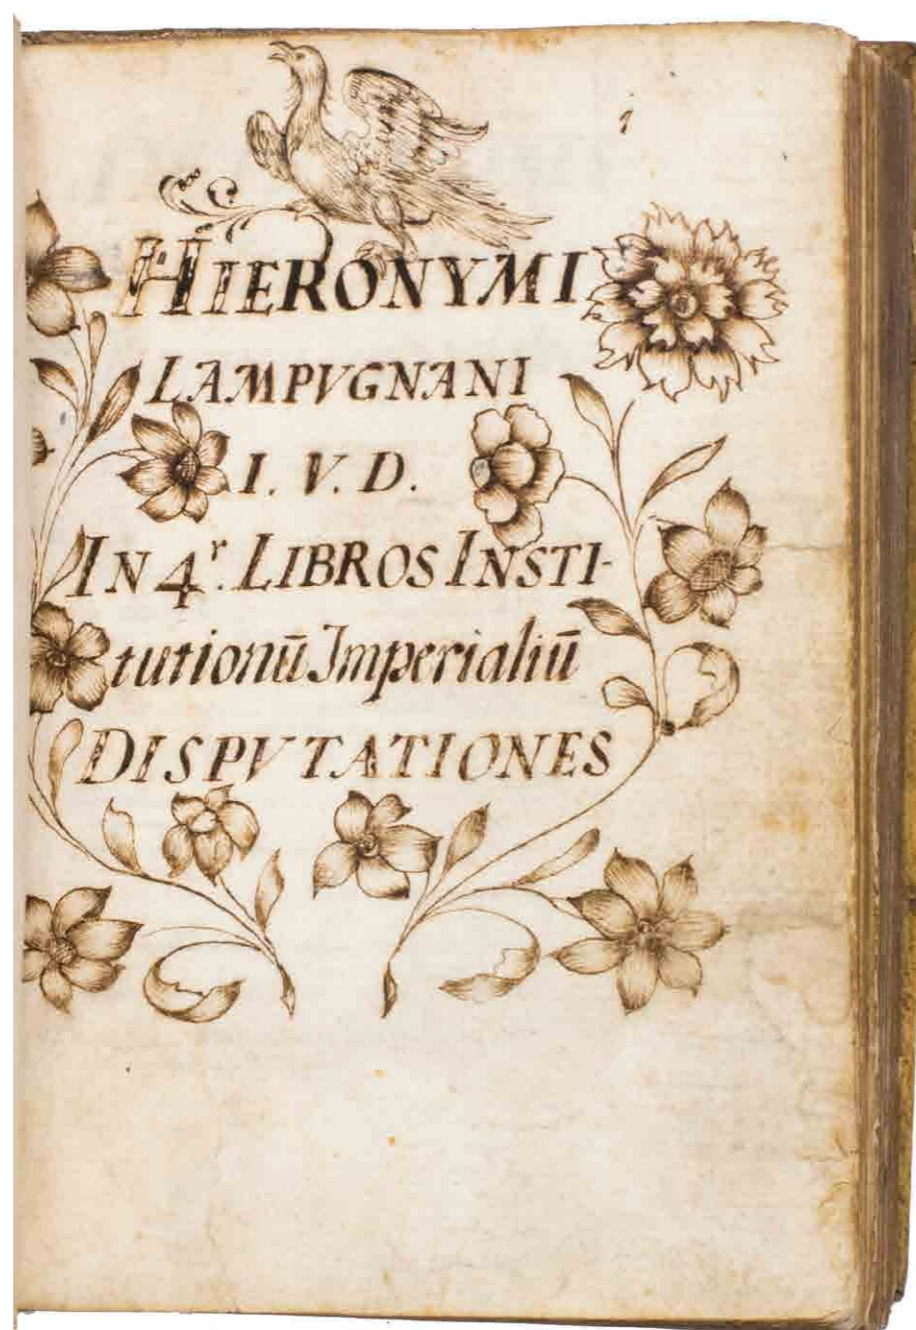 1
HIERONYMI
LAMPVGNANI
I. V. D.
IN 4.ʳ LIBROS INSTI-
tutionū Imperialiū
DISPVTATIONES